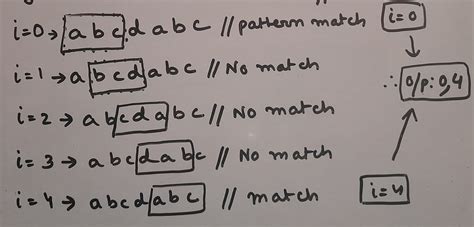 i=0 → abcdabc // pattern match
i=1 → abcdabc // No match
i=2 → abcdabc // No match
i=3 → abcdabc // No match
i=4 → abcdabc // match
i=0
∴ O/P: 0,4
i=4